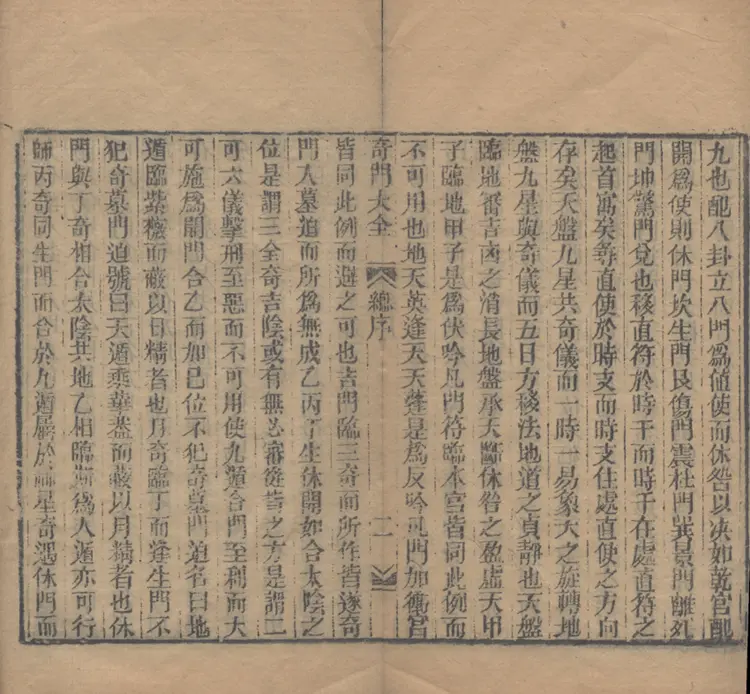 九也配八卦立八門為值使而休咎以决如乾宫配
開為使則休門坎生門艮傷門震杜門巽景門離死
門坤驚門兌也移直符於時干而時干在處直符之
起首寓矣尋直使於時支而時支住處直使之方向
存矣天盤九星共奇儀而一時一易象天之旋轉地
盤九星與奇儀而五日方移法地道之貞靜也天盤
臨地審吉凶之消長地盤承天斷休咎之盈虛天甲
子臨地甲子是為伏吟凡門符臨本宫皆同此例而
不可用也地天英逢天天蓬是為反吟凡門加衝宫
奇門大全 總序 二
皆同此例而避之可也吉門臨三奇而所作皆遂奇
門入墓迫而所為無成乙丙丁生休開如合太陰之
位是謂三全奇吉陰或有無必審從吉之方是謂二
可六儀擊刑至惡而不可用使九遁合門至利而大
可施為開門合乙而加己位不犯奇墓門迫名曰地
遁臨紫微而蔽以日精者也月奇臨丁而逢生門不
犯奇墓門迫號曰天遁乘華蓋而蔽以月精者也休
門與丁奇相合太陰共地乙相臨斯為人遁亦可行
師丙奇同生門而合於九遁屬於神星奇遇休門而